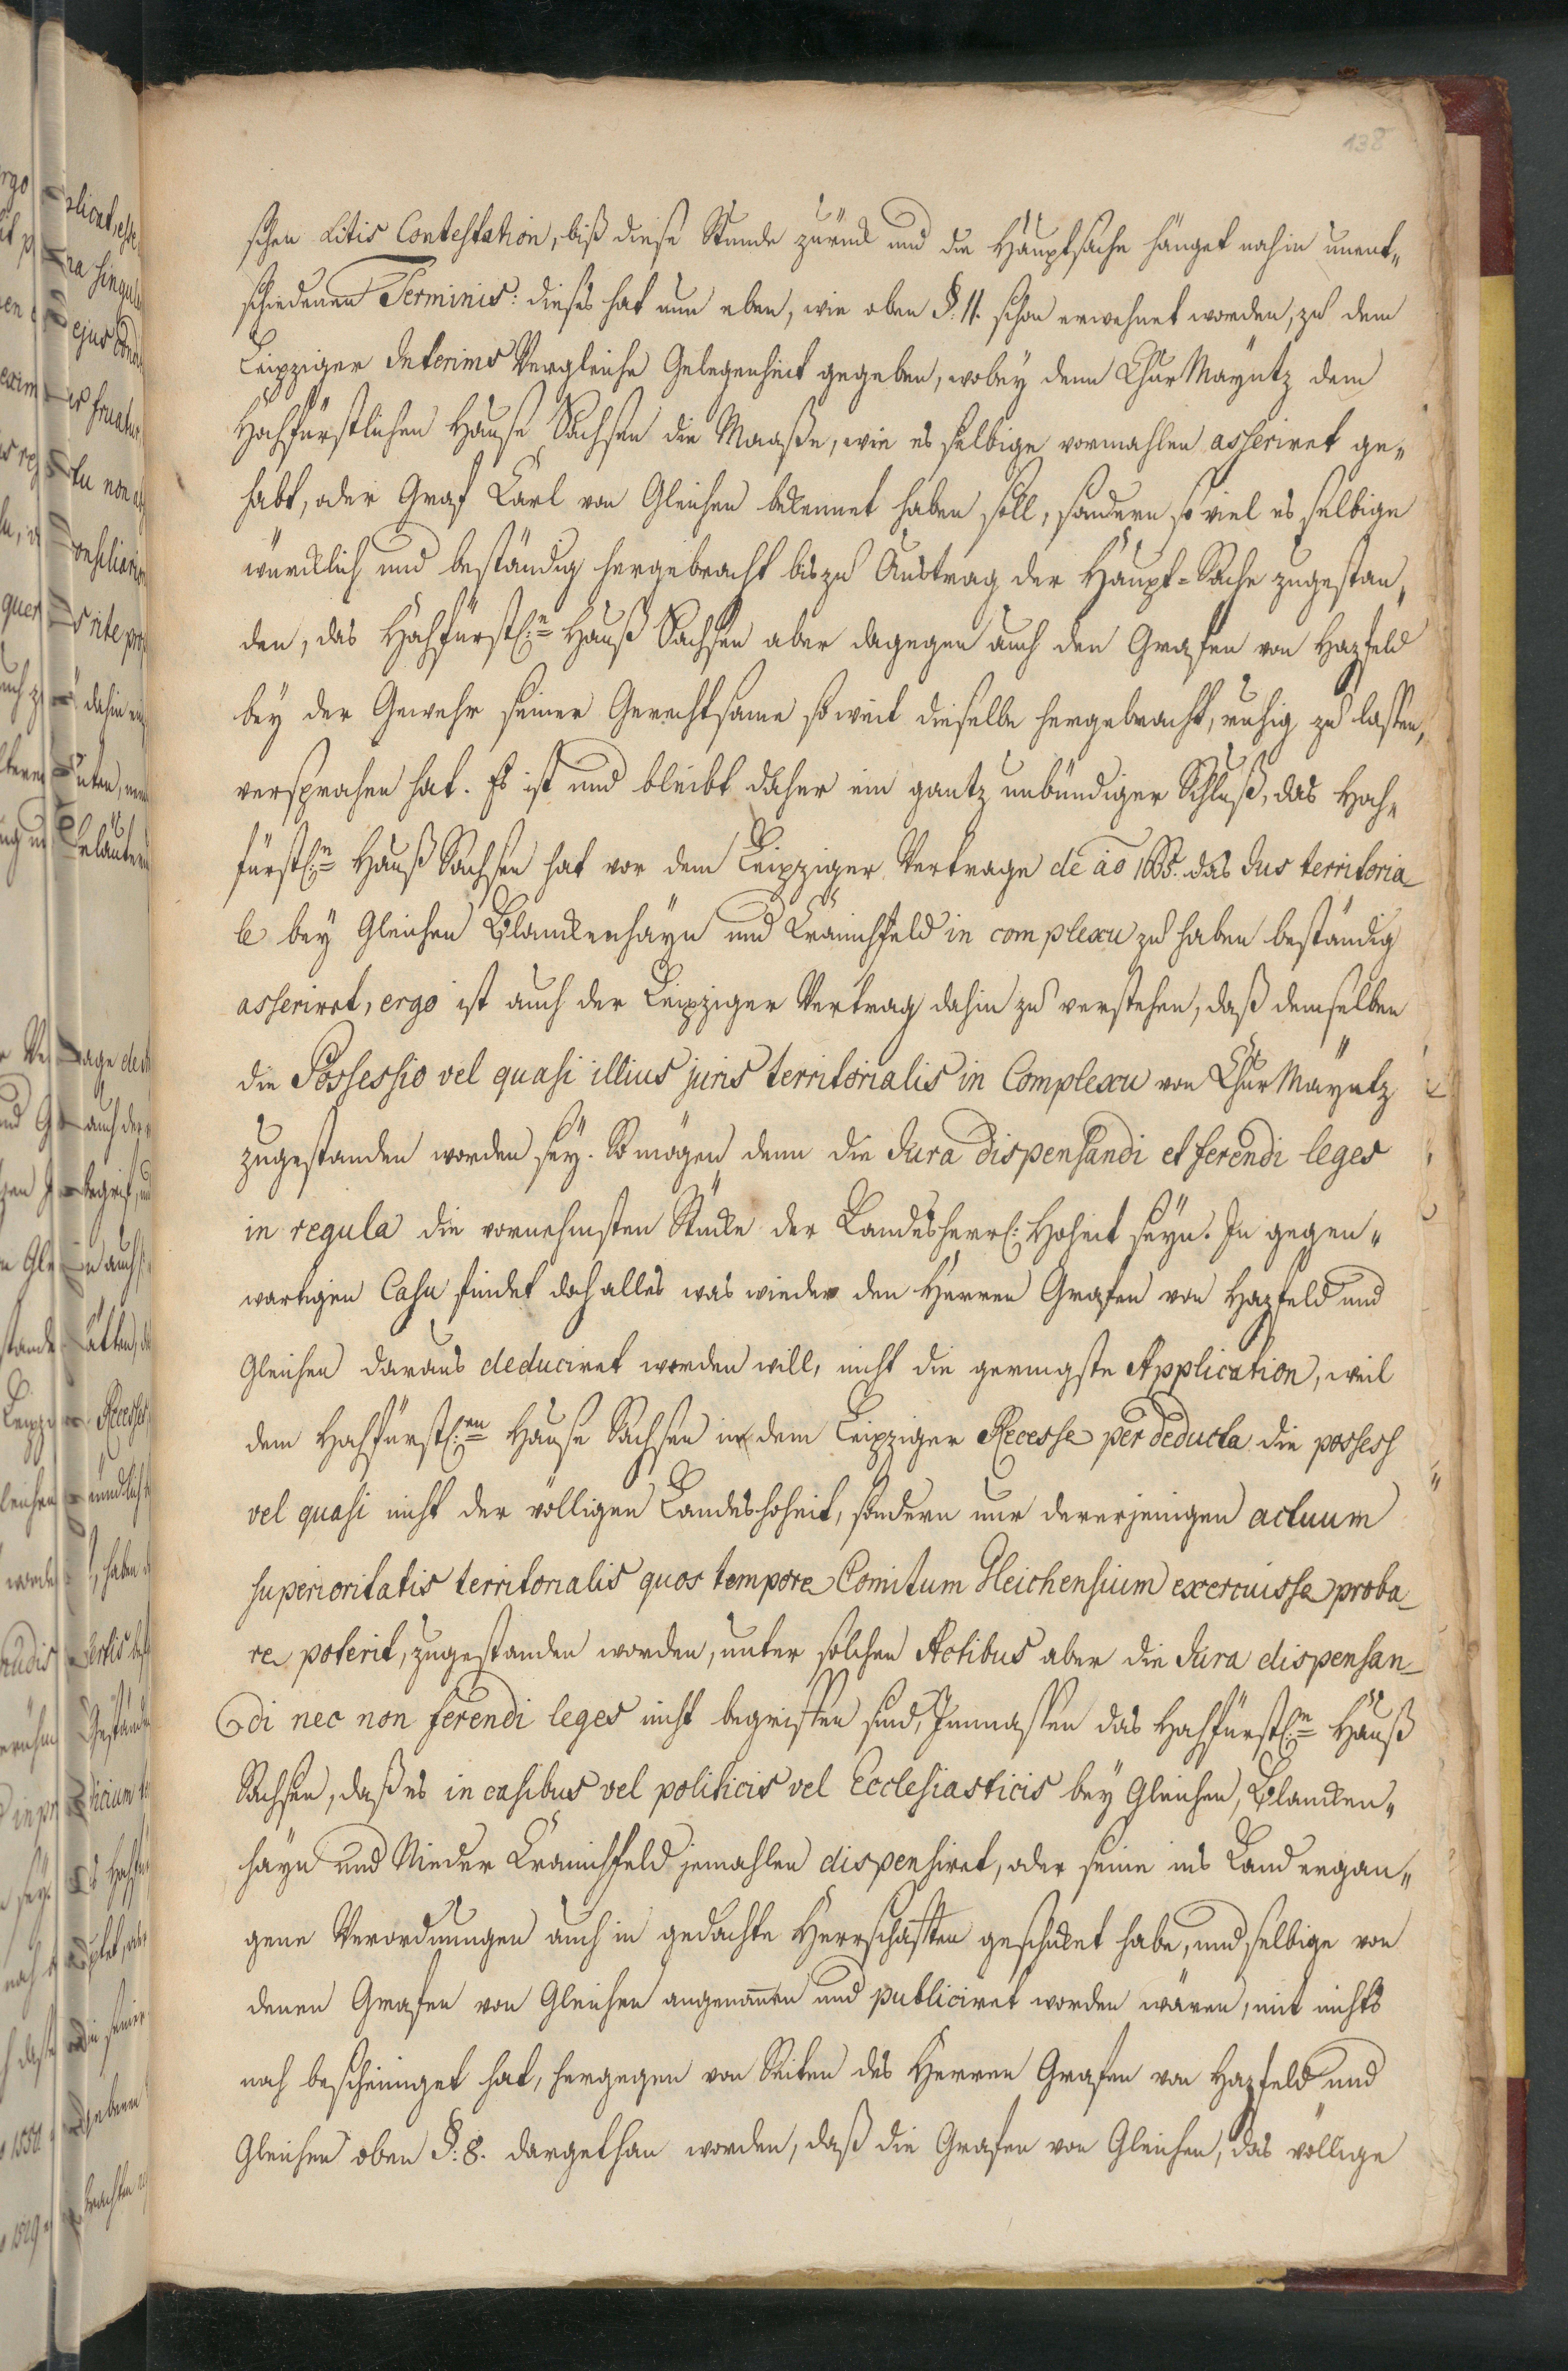 138
schen Litis Contestation, biß diese Stunde zurück und die Hauptsache hänget noch in unent„
schiedenen Terminis: dieses hat nun eben, wie oben §. 11. schon erwehnet worden, zu dem
Leipziger Interims Vergleiche Gelegenheit gegeben, wobey denn Chur Mayntz dem
Hochfürstlichen Hause Sachsen die Maaße, wie es selbige vormahlen asseriret ge„
habt, oder Graf Carl von Gleichen bekennet haben soll, sondern so viel es selbige
würcklich und beständig hergebracht bis zu Austrag der Haupt-Sache zugestan„
den, das Hochfürstl:n Hauß Sachsen aber dagegen auch den Grafen von Hazfeld
bey der Gewehr seiner Gerechtsame so weit dieselbe hergebracht, ruhig zu lassen,
versprochen hat. Es ist und bleibt daher ein gantz unbündiger Schluß, das Hoch„
fürstl:n Hauß Sachsen hat vor dem Leipziger Vertrage de ao 1665. das Jus territoria
le bey Gleichen Blanckenhayn und Cranichfeld in complexu zu haben beständig
asseriret, ergo ist auch der Leipziger Vertrag dahin zu verstehen, daß demselben
die Possessio vel quasi illius juris territorialis in Complexu von Chur Mayntz
zugestanden worden sey. So mögen denn die Jura dispensandi et ferendi leges
in regula die vornehmsten Stücke der Landesherrl: Hoheit seyn. In gegen„
wartigen Casu findet doch alles was wieder den Herren Grafen von Hazfeld und
Gleichen daraus deduciret werden will, nicht die geringste Application, weil
dem Hochfürstl:en Hause Sachsen in dem Leipziger Recesse per deducta die possess
vel quasi nicht der völligen Landeshoheit, sondern nur dererjenigen actuum
superioritatis territorialis quos tempore Comitum Gleichensium exercuisse proba
re poterit, zugestanden worden, unter solchen Actibus aber die Jura dispensan
di nec non ferendi leges nicht begriffen sind, Immassen das Hochfürstl:n Hauß
Sachsen, daß es in casibus vel politicis vel Ecclesiasticis bey Gleichen, Blancken„
hayn und Nieder Cranichfeld jemahlen dispensiret, oder seine ins Land ergan„
gene Verordnungen auch in gedachte Herrschafften geschicket habe, und selbige von
denen Grafen von Gleichen angenom̄en und publiciret worden wären, mit nichts
noch bescheiniget hat, hergegen von Seiten des Herren Grafen von Hazfeld und
Gleichen oben §. 8. dargethan worden, daß die Grafen von Gleichen, das völlige